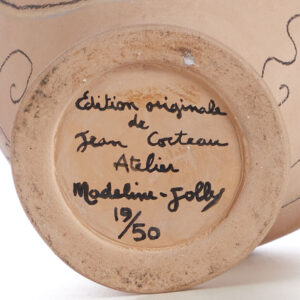 Edition originale
de
Jean Cocteau
Atelier
Madeline-Jolly
19/50